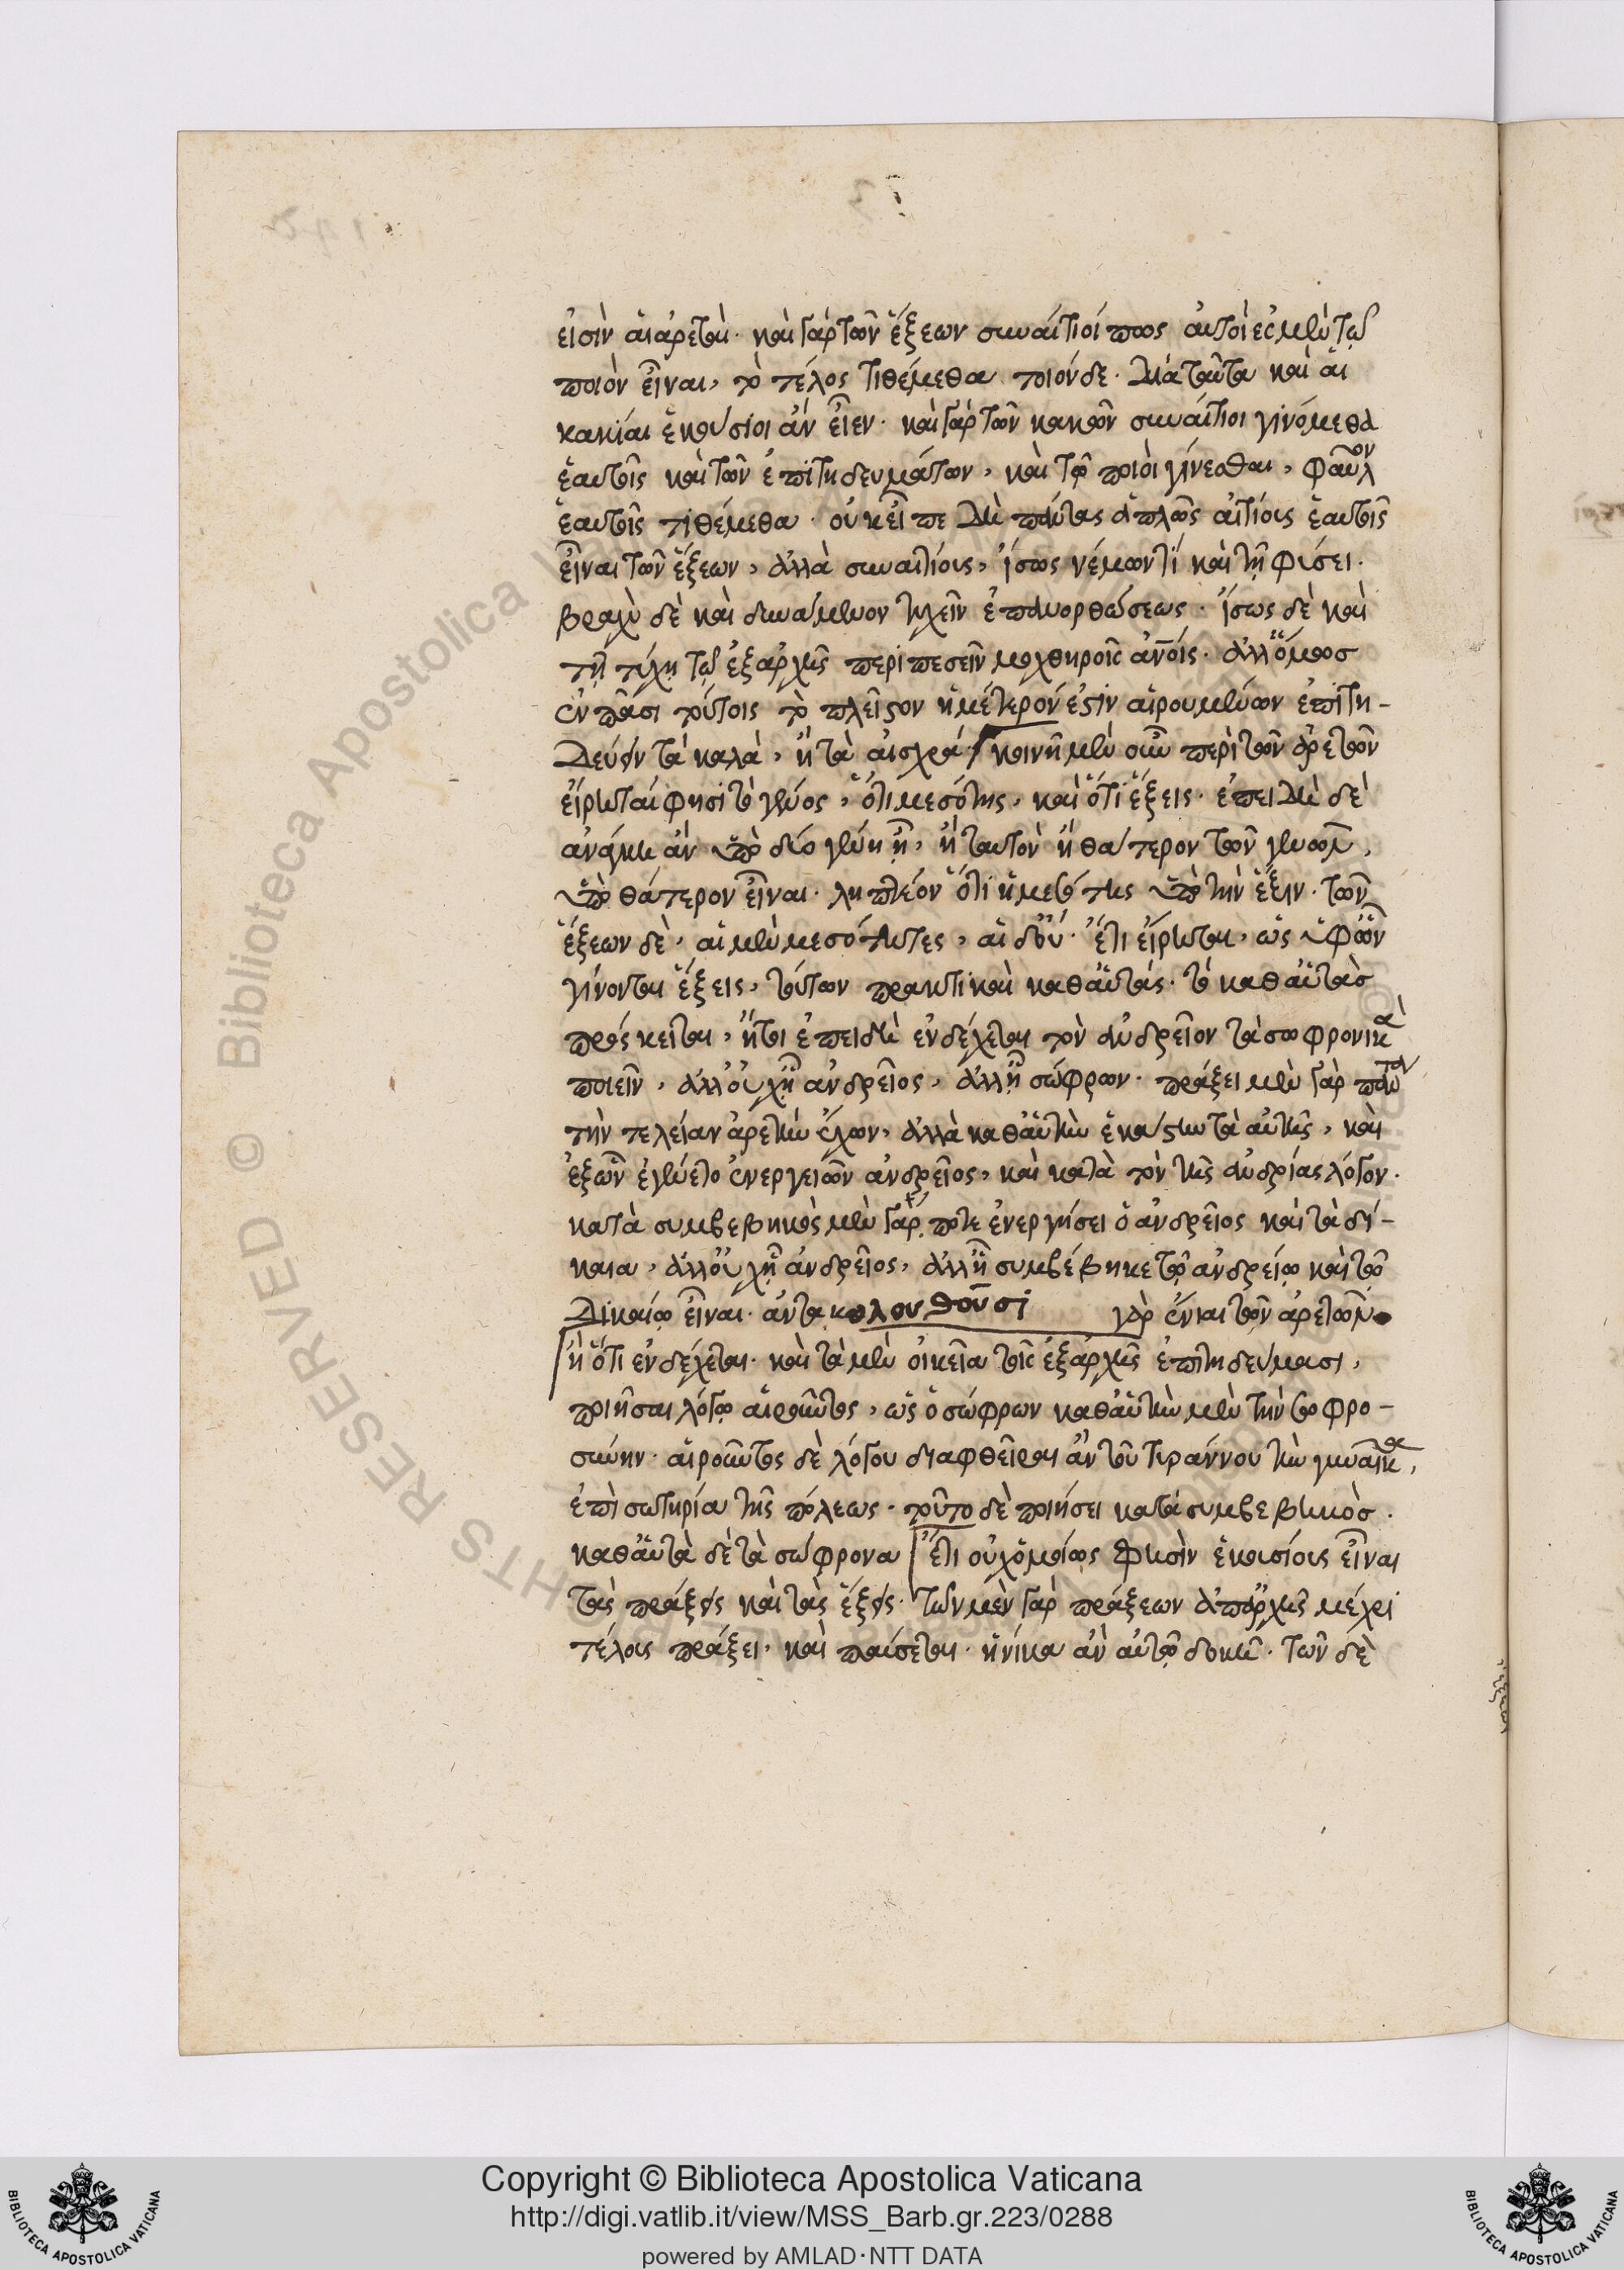 εἰσὶν αἱ ἀρεταί. καὶ γὰρ τῶν ἕξεων συναίτιοί πως αὐτοὶ ἐσμὲν τῷ
ποιὸν εἶναι, τὸ τέλος τιθέμεθα τοιόνδε. διὰ ταῦτα καὶ αἱ
κακίαι ἑκούσιοι ἂν εἶεν. καὶ γὰρ τῶν κακῶν συναίτιοι γινόμεθα
ἑαυτοῖς καὶ τῶν ἐπιτηδευμάτων, καὶ τῷ ποιοὶ γίνεσθαι, φαῦλον
ἑαυτοῖς τιθέμεθα. οὐκ εἶπε δὲ πάντας ἁπλῶς αἰτίους ἑαυτοῖς
εἶναι τῶν ἕξεων, ἀλλὰ συναιτίους, ἴσως νέμων τί καὶ τῇ φύσει.
βραχὺ δὲ καὶ δυναμένον τυχεῖν ἐπανορθώσεως. ἴσως δὲ καὶ
τῇ τύχῃ τῷ ἐξαρχῆς περιπεσεῖν μοχθηροῖς ἀνοις. ἀλλ' ὅμως
ἐν πᾶσι τούτοις τὸ πλεῖστον ἡμέτερόν ἐστιν αἱρουμένων ἐπιτη-
δεύειν τὰ καλὰ, ἢ τὰ αἰσχρά. κοινῇ μὲν οὖν περὶ τῶν ἀρετῶν
εἴρηται φησὶ τὸ γένος, ὅτι μεσότης, καὶ ὅτι ἕξεις. ἐπειδὴ δὲ
ἀνάγκη ἂν ὑπὸ δύο γένη ᾖ, ἢ ταυτὸν ἢ θάτερον τῶν γενῶν,
ὑπὸ θάτερον εἶναι. λεπτέον ὅτι ἡ μεσότης ὑπὸ τὴν ἕξιν. τῶν
ἕξεων δὲ, αἱ μὲν μεσότητες, αἱ δ' οὔ. ἔτι εἴρηται, ὡς ὑφ' ὧν
γίνονται ἕξεις, τούτων πρακτικαὶ καθ' αὑτάς. τὸ καθ' αὑτὰς
πρόσκειται, ἤτοι ἐπειδὴ ἐνδέχεται τὸν ἀνδρεῖον τὰ σωφρονικὰ
ποιεῖν, ἀλλ' οὐχ ᾗ ἀνδρεῖος, ἀλλ' ᾗ σώφρων. πράξει μὲν γὰρ πάντα
τὴν τελείαν ἀρετὴν ἔχων, ἀλλὰ καθ' αὑτὴν ἑκάστην τὰ αὐτῆς, καὶ
ἐξ ὧν ἐγένετο ἐνεργειῶν ἀνδρεῖος, καὶ κατὰ τὸν τῆς ἀνδρίας λόγον.
κατὰ συμβεβηκὸς μὲν γάρ ποτε ἐνεργήσει ὁ ἀνδρεῖος καὶ τὰ δί-
καια, ἀλλ' οὐχ ᾗ ἀνδρεῖος, ἀλλ' ᾗ συμβέβηκε τῷ ἀνδρείῳ καὶ τῷ
δικαίῳ εἶναι. ἀντακολουθοῦσι γὰρ ἔνιαι τῶν ἀρετῶν
ἢ ὅτι ἐνδέχεται. καὶ τὰ μὲν οἰκεῖα τοῖς ἐξαρχῆς ἐπιτηδεύμασι,
ποιῆσαι λόγῳ αἱροῦντος, ὡς ὁ σώφρων καθ' αὑτὴν μὲν τὴν σωφρο-
σύνην. αἱροῦντος δὲ λόγου διαφθεῖραι ἂν τοῦ τυράννου τὴν γυναῖκα,
ἐπὶ σωτηρία τῆς πόλεως. τοῦτο δὲ ποιήσει κατὰ συμβεβηκός.
καθ' αὑτὰ δὲ τὰ σώφρονα ἔτι οὐχ ὁμοίως φησὶν ἑκουσίους εἶναι
τὰς πράξεις καὶ τὰς ἕξεις. τῶν μὲν γὰρ πράξεων ἀπ' ἀρχῆς μέχρι
τέλους πράξει, καὶ παύσεται. ἡνίκα ἂν αὐτῷ δοκῇ. τῶν δὲ
Copyright © Biblioteca Apostolica Vaticana
http://digi.vatlib.it/view/MSS_Barb.gr.223/0288
powered by AMLAD·NTT DATA